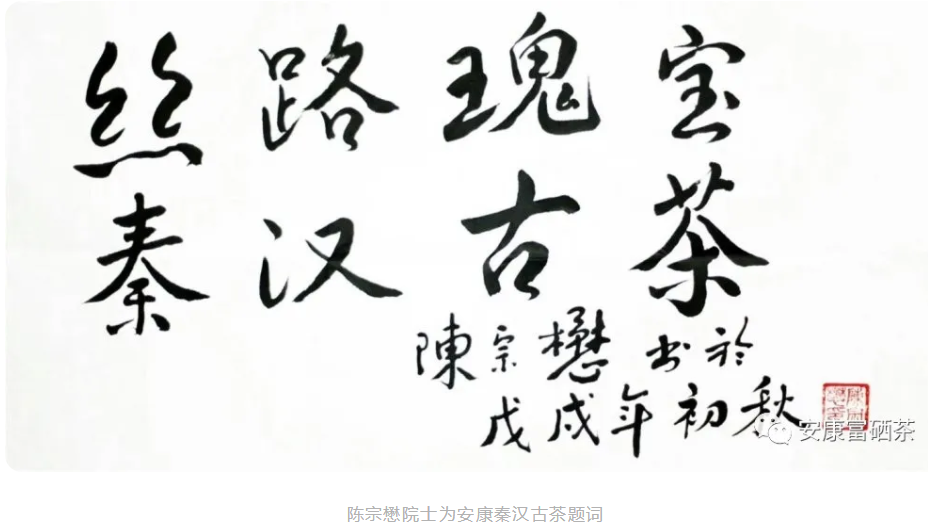 丝路瑰宝
秦汉古茶
陳宗懋书於
戊戌年初秋
安康富硒茶
陈宗懋院士为安康秦汉古茶题词